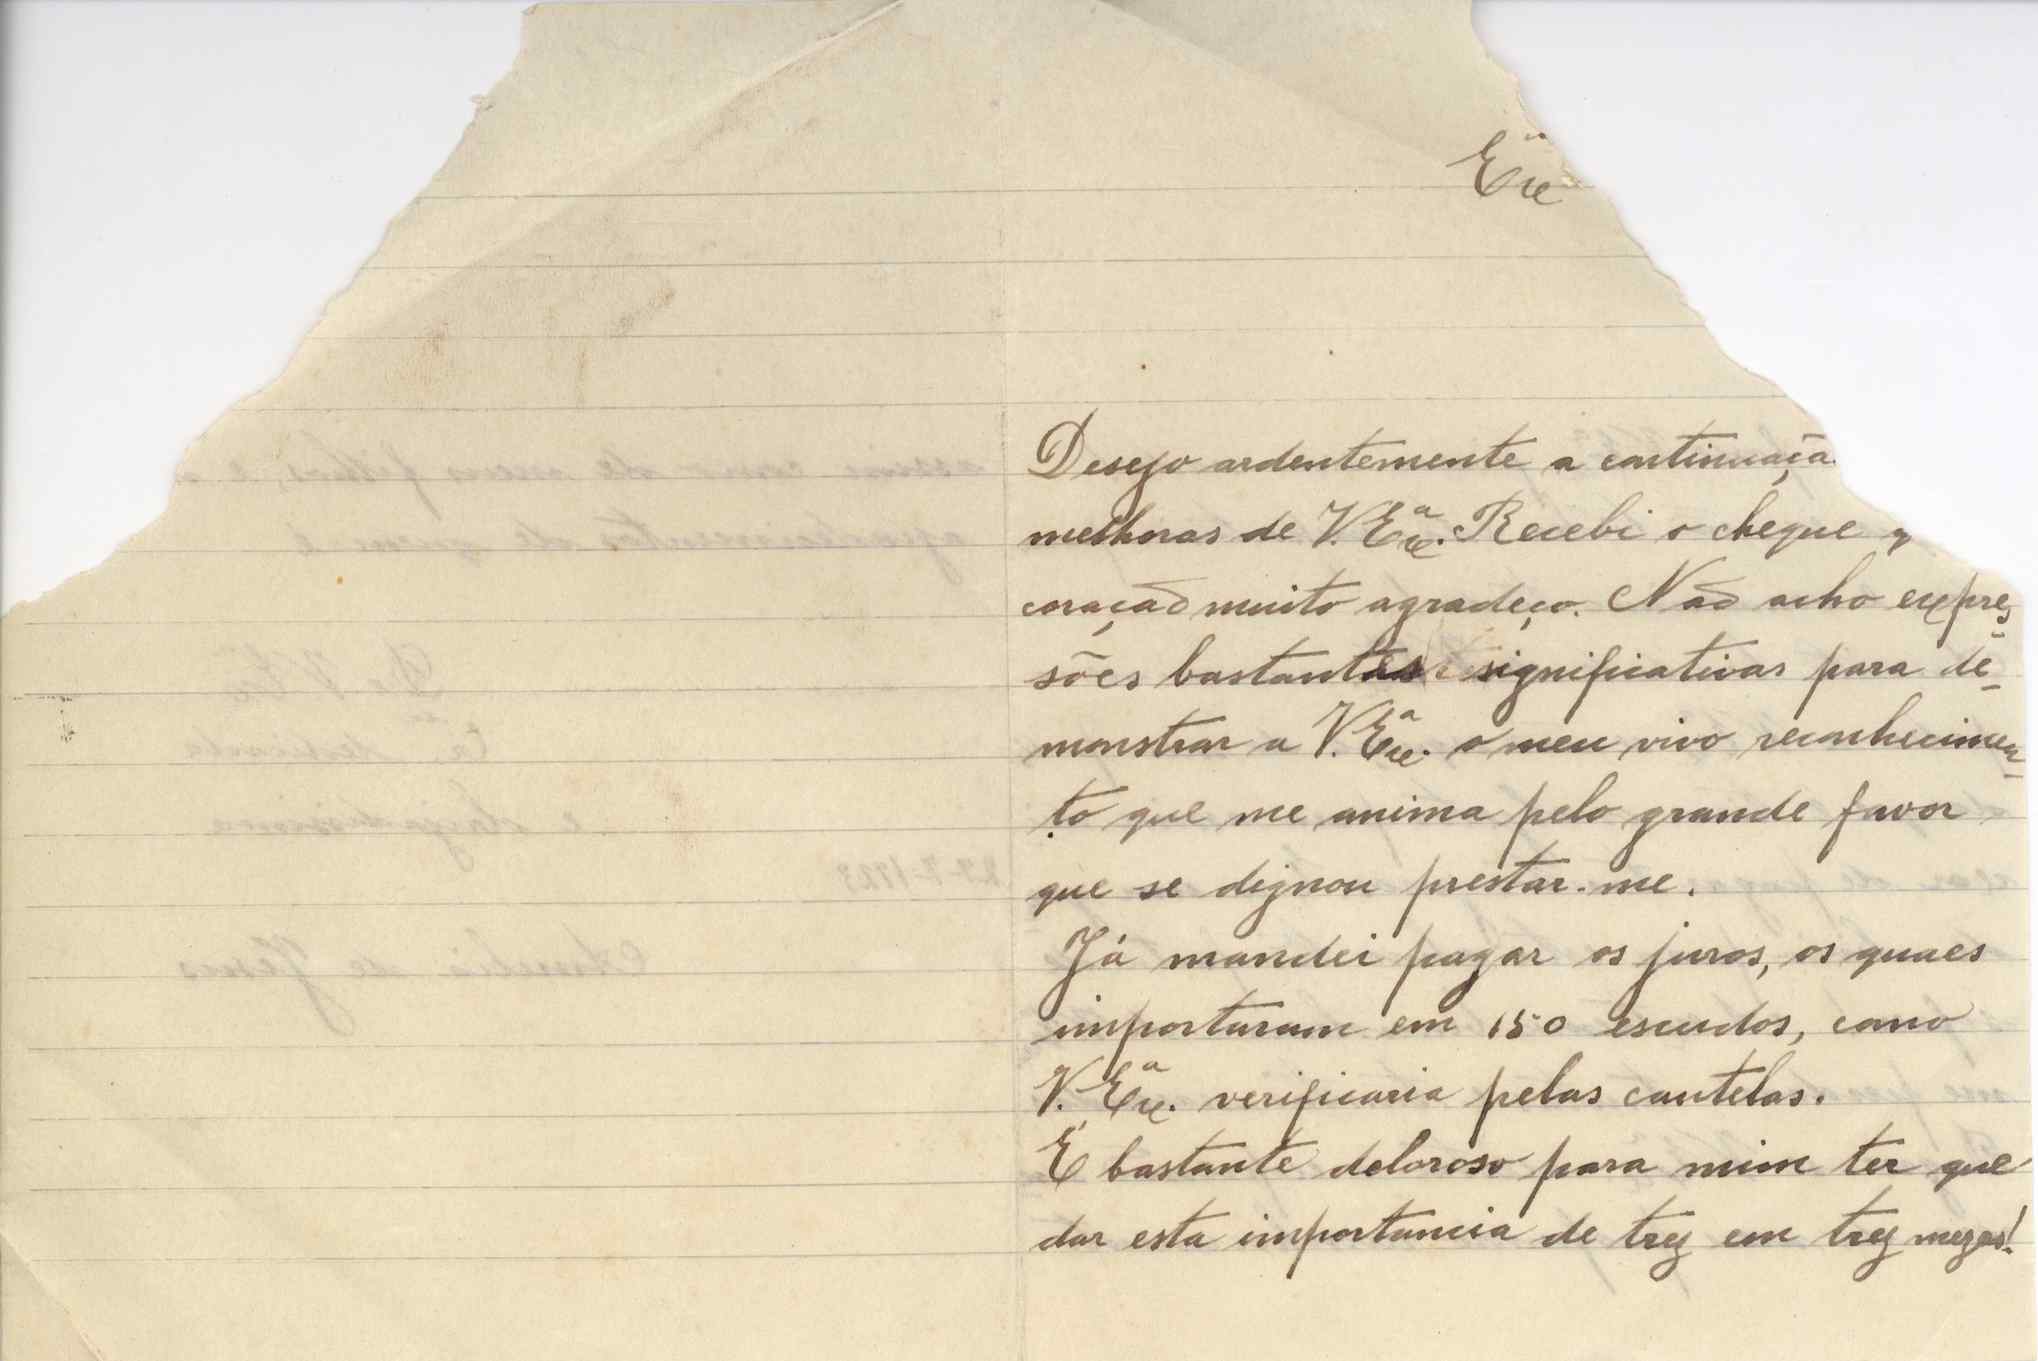 Exᵃ
Desejo ardentemente a continuaçã
melhoras de V. Exᵃ. Recebi o cheque q
coração muito agradeço. Não acho expres
sões bastantes significativas para de-
monstrar a V. Exᵃ. o meu vivo reconhecimen-
to que me anima pelo grande favor
que se dignou prestar-me.
Já mandei pagar os juros, os quaes
importaram em 150 escudos, como
V. Exᵃ. verificaria pelas cautelas.
É bastante doloroso para mim ter que
dar esta importancia de trez em trez mezes!